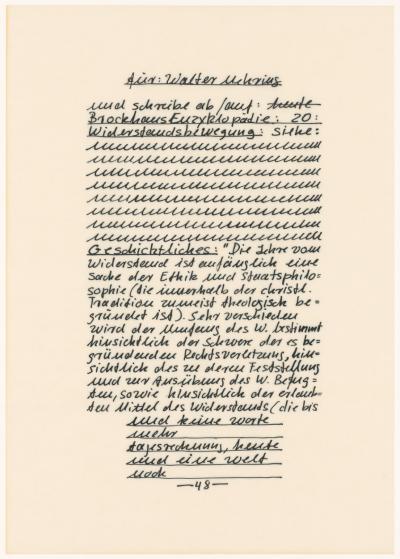 für: Walter Mehring
und schreibe ab/auf: heute
BrockhausEnzyklopädie: 20:
Widerstandsbewegung: siehe:
Geschichtliches: "Die Lehre vom
Widerstand ist anfänglich eine
Sache der Ethik und Staatsphilo=
sophie (die innerhalb der christl.
Tradition zumeist theologisch be=
gründet ist). Sehr verschieden
wird der Umfang des W. bestimmt
hinsichtlich der Schwere der es be=
gründenden Rechtsverletzung, hin=
sichtlich des zu deren Feststellung
und zur Ausübung des W. Befug=
ten, sowie hinsichtlich der erlaub=
ten Mittel des Widerstands (die bis
und keine worte
mehr
tagesrechnung, heute
und eine welt
noch
—48—